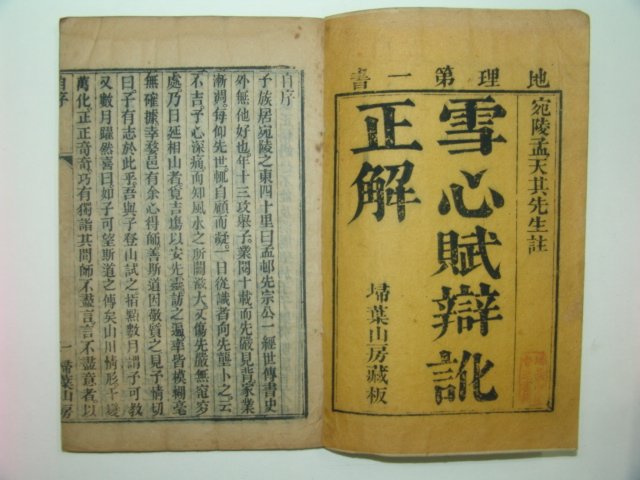 地理第一書
宛陵孟天其先生註
雪心賦辯訛
正解
埽葉山房藏板
自序
予族居宛陵之東四十里曰孟邨先宗公一經世傳書史
外無他好也年十三攻舉子業閱十載而先嚴見背家業
漸凋每仰先世軏自顧而凝一日從識者向先壟卜之云
不吉予心深痛而知風水之所關敵大又傷先嚴無窀穸
處乃日延相山者覓吉塲以安先靈訪之遍率皆模糊毫
無確據幸婺邑有余心得師善斯道因敬質之見予情切
曰子有志於此乎吾與子登山試之指點數月謂予可教
又數月躍然喜曰如子可望斯道之傳矣山川情形千變
萬化正正奇奇巧有獨詣其間師不盡言言不盡意者以
自序
一
埽葉山房